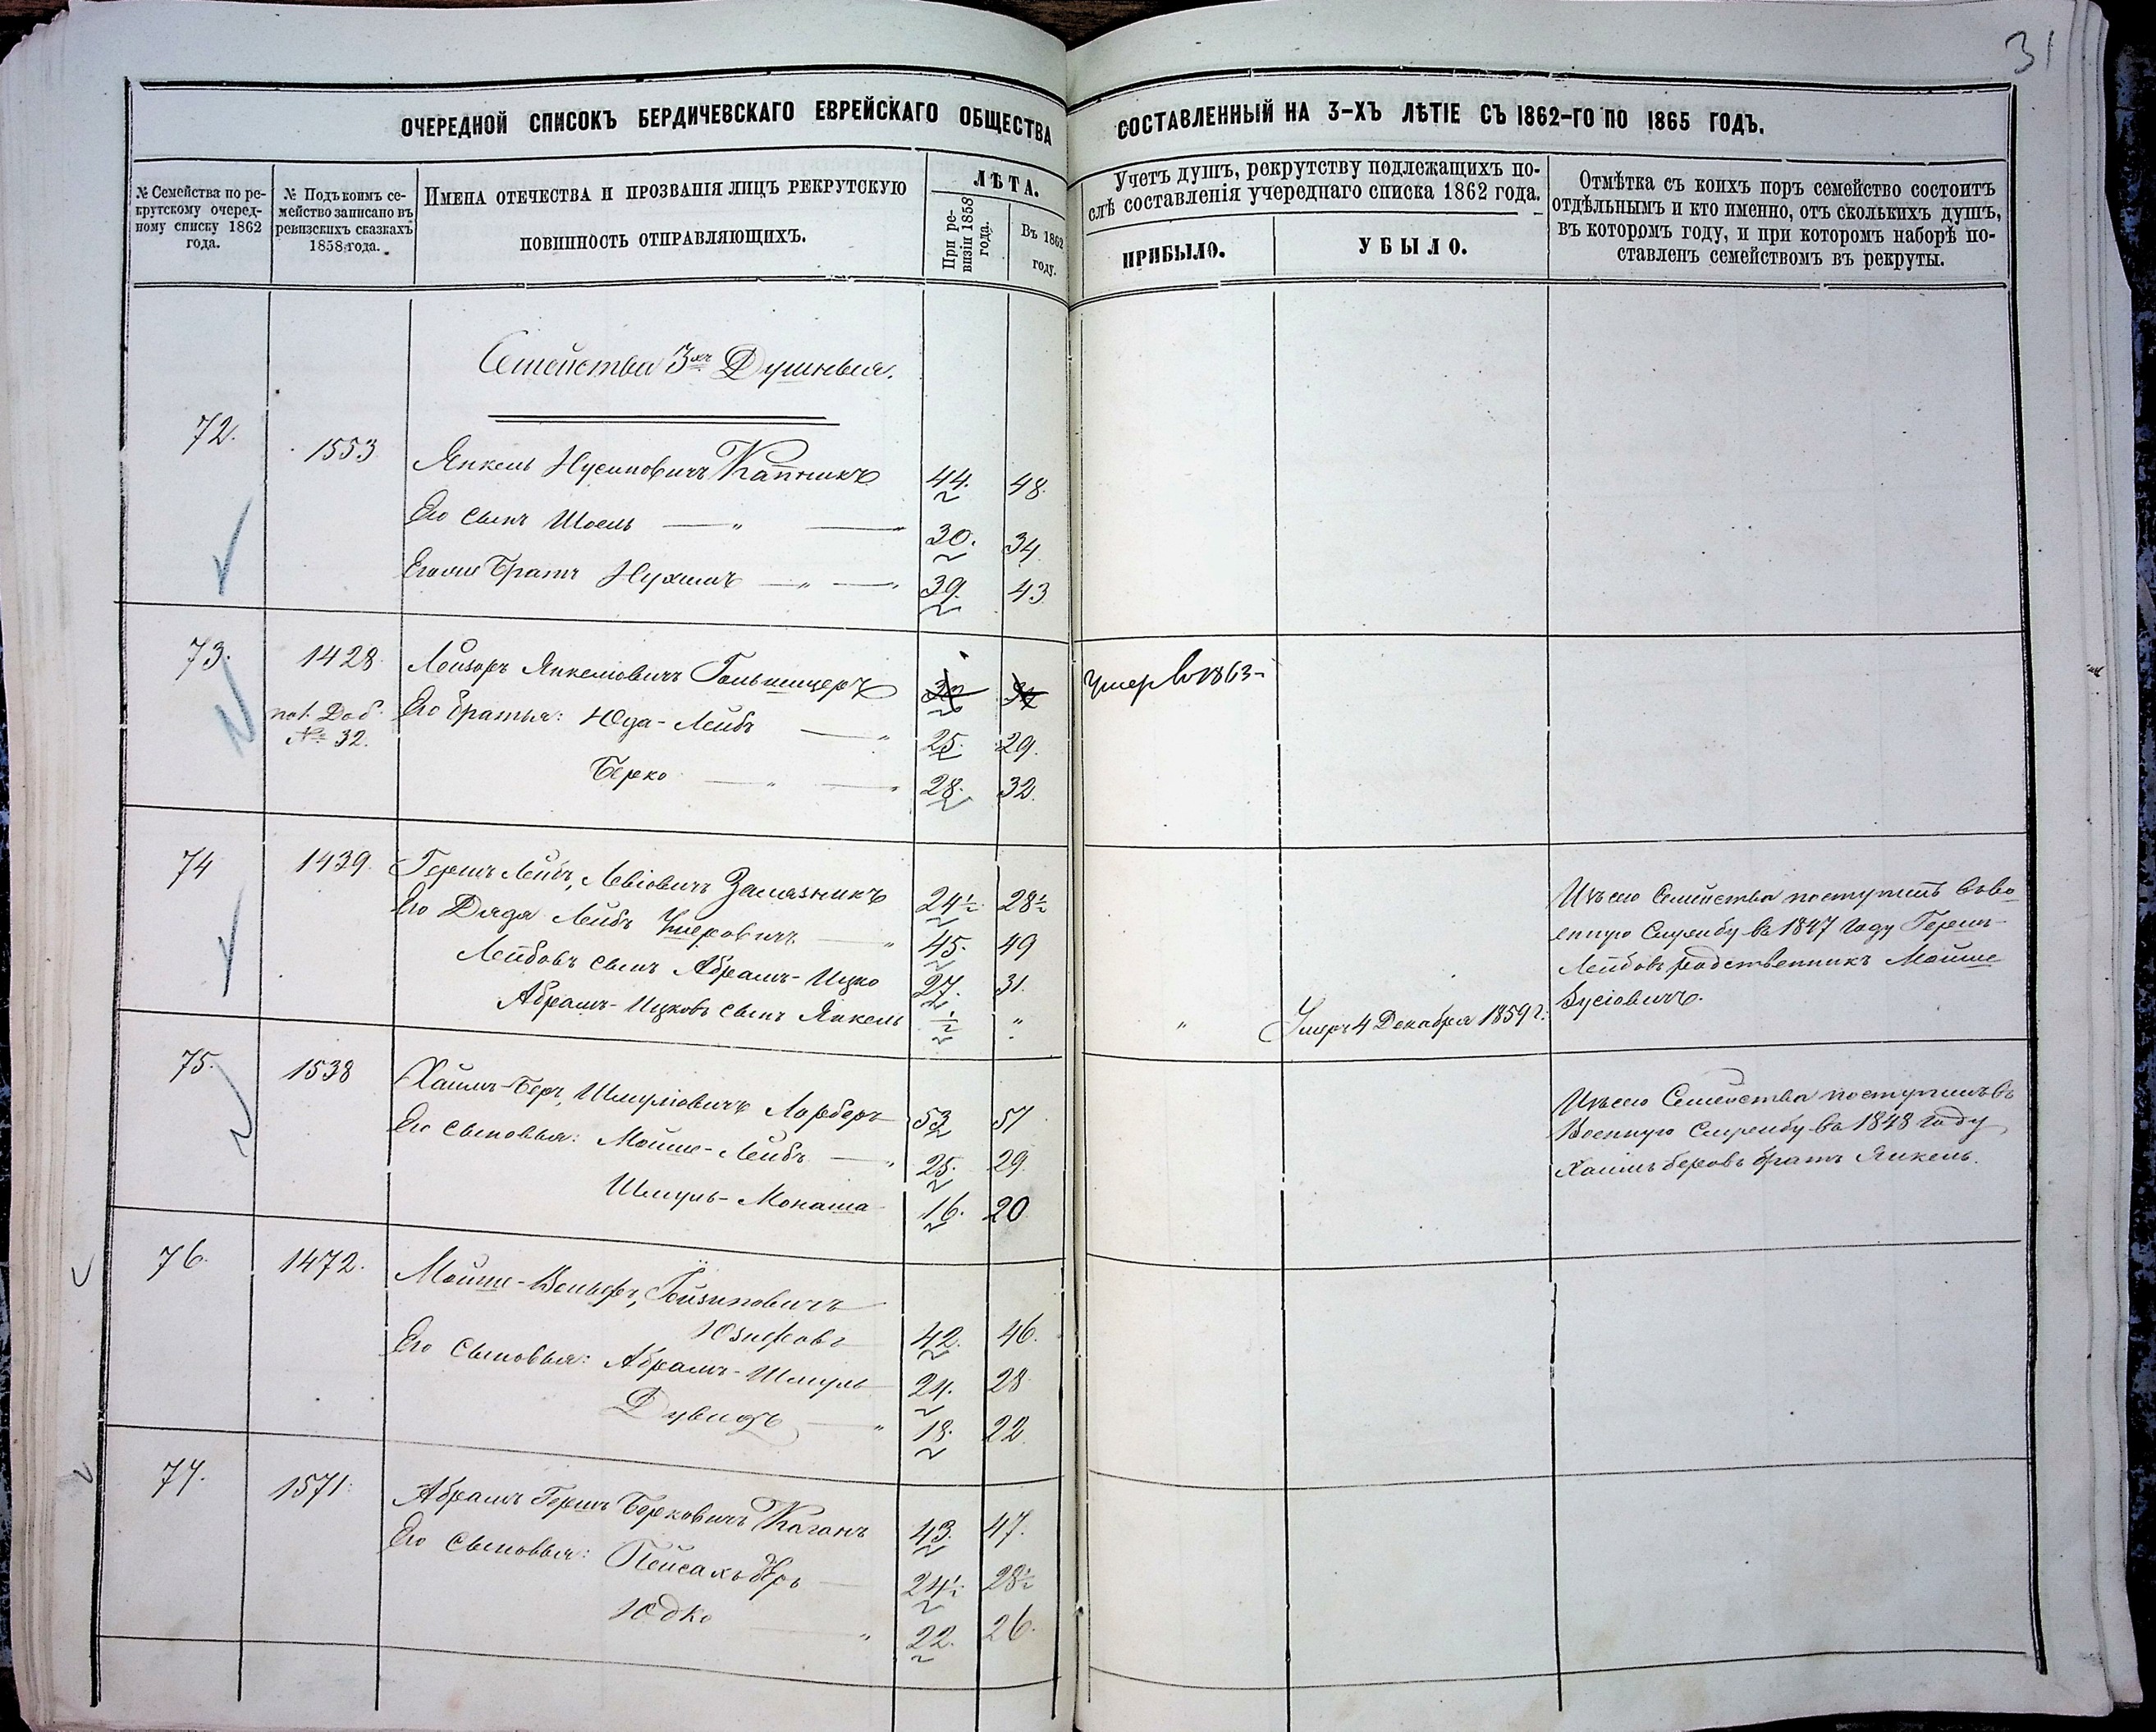 31
ОЧЕРЕДНОЙ СПИСОКЪ БЕРДИЧЕВСКАГО ЕВРЕЙСКАГО ОБЩЕСТВА СОСТАВЛЕННЫЙ НА 3-ХЪ ЛѢТІЕ СЪ 1862-ГО ПО 1865 ГОДЪ.
№ Семейства по ре-
крутскому очеред-
ному списку 1862
года.
№ Подъ коимъ се-
мейство записано въ
ревизскихъ сказкахъ
1858 года.
ИМЕНА ОТЕЧЕСТВА И ПРОЗВАНІЯ ЛИЦЪ РЕКРУТСКУЮ
ПОВИННОСТЬ ОТПРАВЛЯЮЩИХЪ.
ЛѢТА.
При ре-
визіи 1858
года.
Въ 1862
году.
Учетъ душъ, рекрутству подлежащихъ по-
слѣ составленія учереднаго списка 1862 года.
ПРИБЫЛО.
УБЫЛО.
Отмѣтка съ коихъ поръ семейство состоитъ
отдѣльнымъ и кто именно, отъ сколькихъ душъ,
въ которомъ году, и при которомъ наборѣ по-
ставленъ семействомъ въ рекруты.
Семейства 3хъ Душныя.
72. 1553 Янкель Нусиновичъ Капникъ 44. 48.
Его сынъ Шоель — " — 30. 34.
Его же братъ Нухимъ — " — " 39. 43
73. 1428. Лейзоръ Янкелiовичъ Гольшицеръ Умер в 1863
по 1. Доб. Его братья: Юда-Лейбъ — " 25. 29.
№ 32.
Берко — " — " 28. 32.
74 1439. Гершъ Лейбъ, Левiовичъ Замазникъ 24½ 28½
Его Дядя Лейбъ Ушеровичъ — " 45. 49
Лейбовъ сынъ Абрамъ-Ицко 27. 31.
Абрамъ-Ицковъ сынъ Янкель ½ " " Умеръ 4 Декабря 1859 г.
Изъ сего Семейства поступилъ въ Во-
енную Службу въ 1847 году Гершъ
Лейбовъ родственникъ Мойше
Зусiовичъ.
75. 1538 Хаимъ-Беръ, Шмулiовичъ Лорберъ 53 57
Его сыновья: Мойше-Лейбъ — " 25. 29.
Шмуль-Монаша 16. 20
Изъ сего Семейства поступилъ въ
Военную Службу въ 1848 году
Хаимъ Беровъ братъ Янкель.
76. 1472. Мойше-Вольфъ,
Юзифовъ 42. 46.
Его сыновья: Абрамъ-Шмуль 24. 28
Дувидъ — " 18. 22.
77. 1571. Абрамъ Гершъ Берковичъ Каганъ 43. 47.
Его сыновья: Пейсахъ Беръ — 24½ 28½
Юдко " 22. 26.